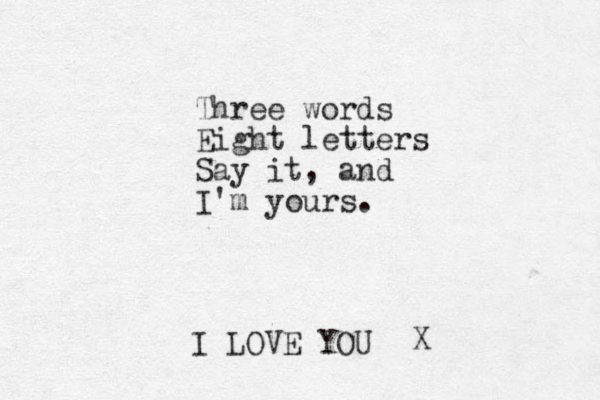 Three words
Eight letters
Say it, and
I'm yours.
I LOVE YOU X